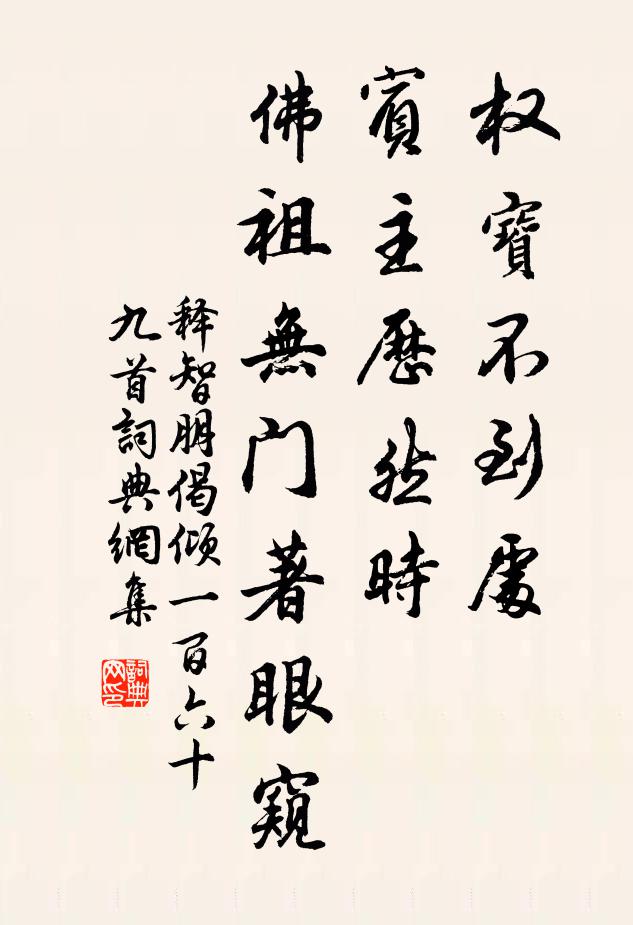 权寶不到處
賓主歷然時
佛祖無门著眼窺
释智朋偈倾一百六十
九首詞典網集
詞典网印